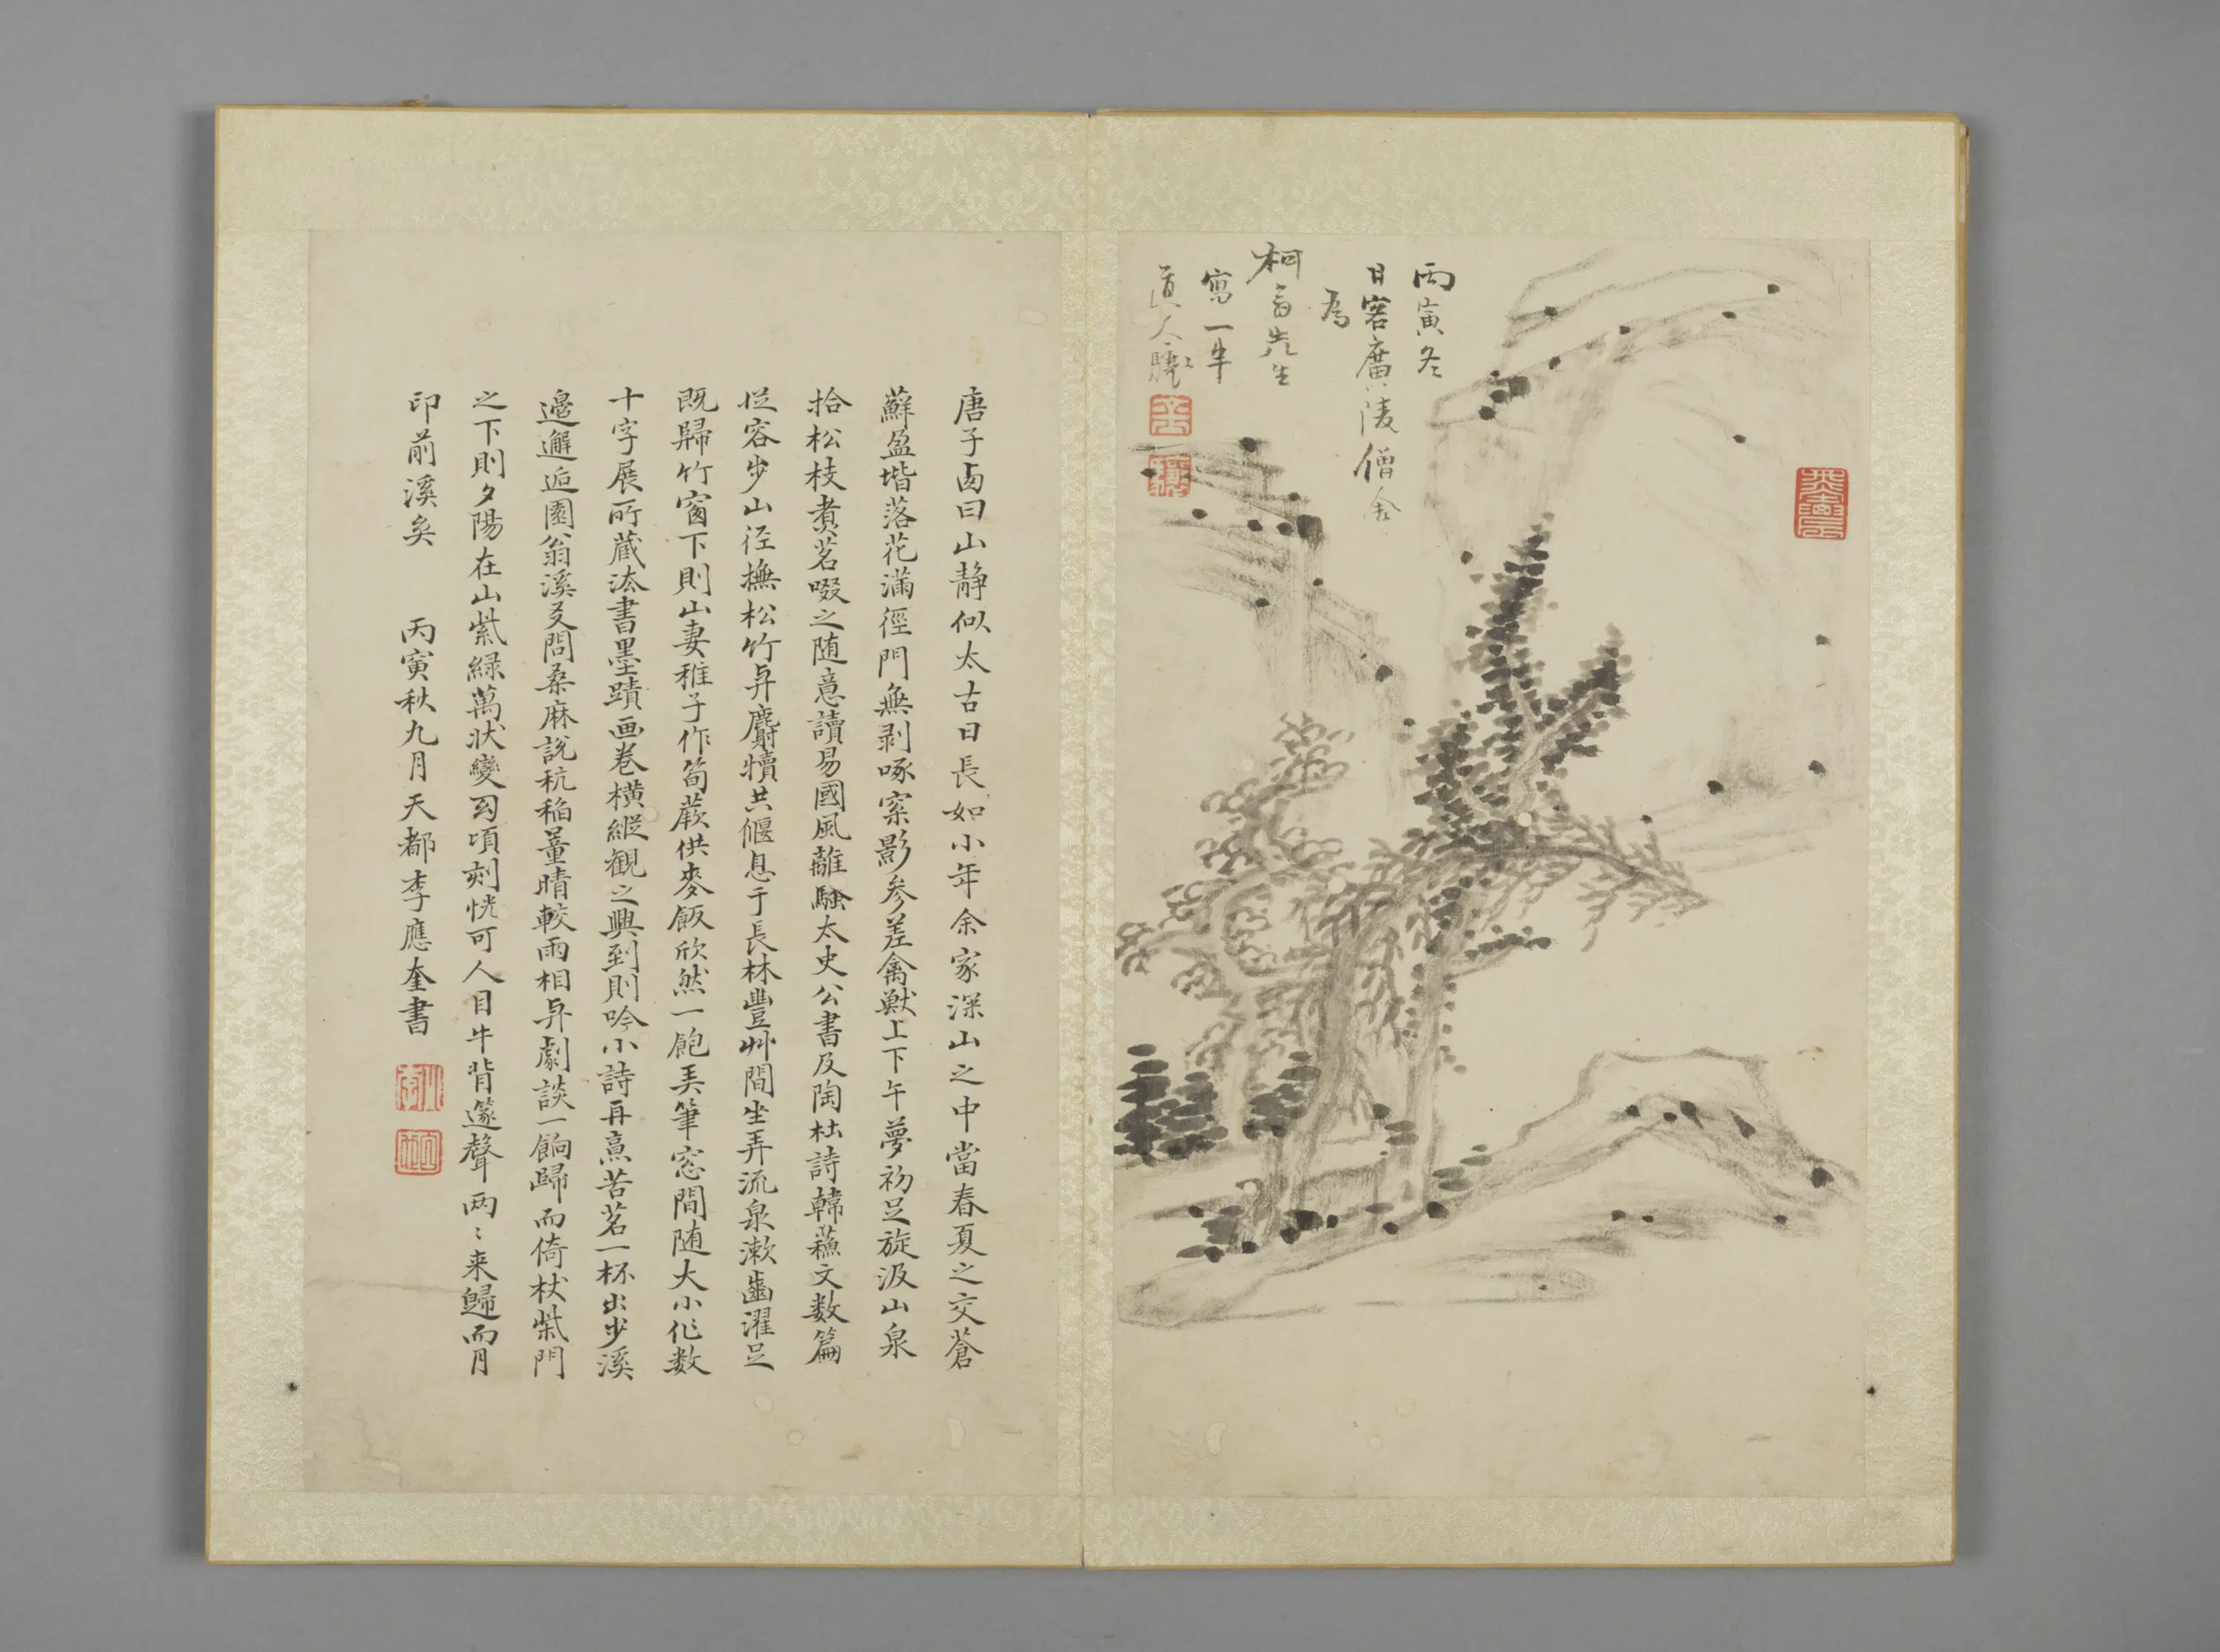 丙寅冬
日客廣陵僧舍
為
柯翁先生
寫一
道人
唐子西曰山静似太古日長如小年余家深山之中當春夏之交蒼
蘚盈堦落花滿徑門無剥啄案影參差禽獸上下午夢初足旋汲山泉
拾松枝煮茗啜之随意讀易國風離騷太史公書及陶杜詩韓蘓文数篇
從容步山徑撫松竹與麛犢共偃息于長林豐艸間坐弄流泉漱齒濯足
既歸竹窗下則山妻稚子作筍蕨供麥飯欣然一飽弄筆窓間随大小作数
十字展所藏法書墨蹟画卷横縱觀之興到則吟小詩再烹苦茗一杯出步溪
邉邂逅園翁溪叟問桑麻說秔稻量晴較雨相與劇談一餉歸而倚杖柴門
之下則夕陽在山紫綠萬狀變幻頃刻恍可人目牛背篴聲兩〻来歸而月
印前溪矣 丙寅秋九月天都李應奎書